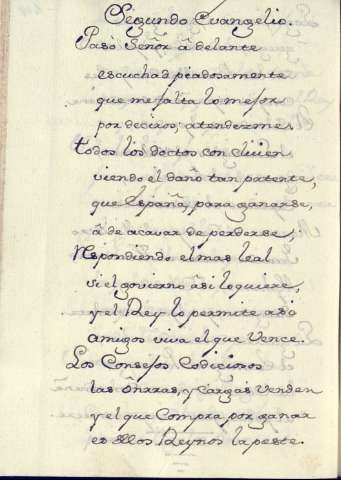 Segundo Evangelio.
Paso Señor âdelante
escuchad piadosamente
que me falta lo mejor
por deciros; atendezme.
todos los doctos concluien
viendo el daño tan patente,
que España, para ganarse,
â de acavar de perderse;
Respondiendo el mas leal
si el govierno asi lo quiere,
y el Rey lo permite asi
amigos viva el que Vence.
Los Consejos Codiciosos
las Ônrras, y Cargas Venden
y el que Compra por ganar
es dellos Reynos la peste.